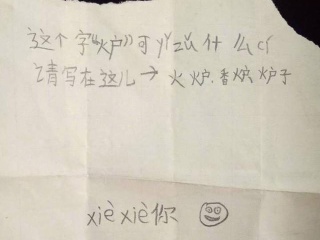 这个字“炉”可以zǔ什么cí
请写在这儿→火炉.香炉.炉子
xiè xiè你